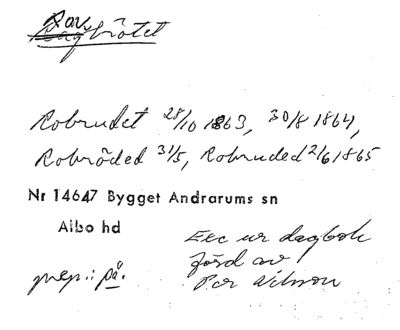 Rav
brötet
Robrudet 28/10 1863, 30/8 1864,
Robröded 31/5, Robruded 2/6 1865
Nr 14647 Bygget Andrarums sn
Albo hd
Exc ur dagbok
förd av
prep.: på. Per Nilsson